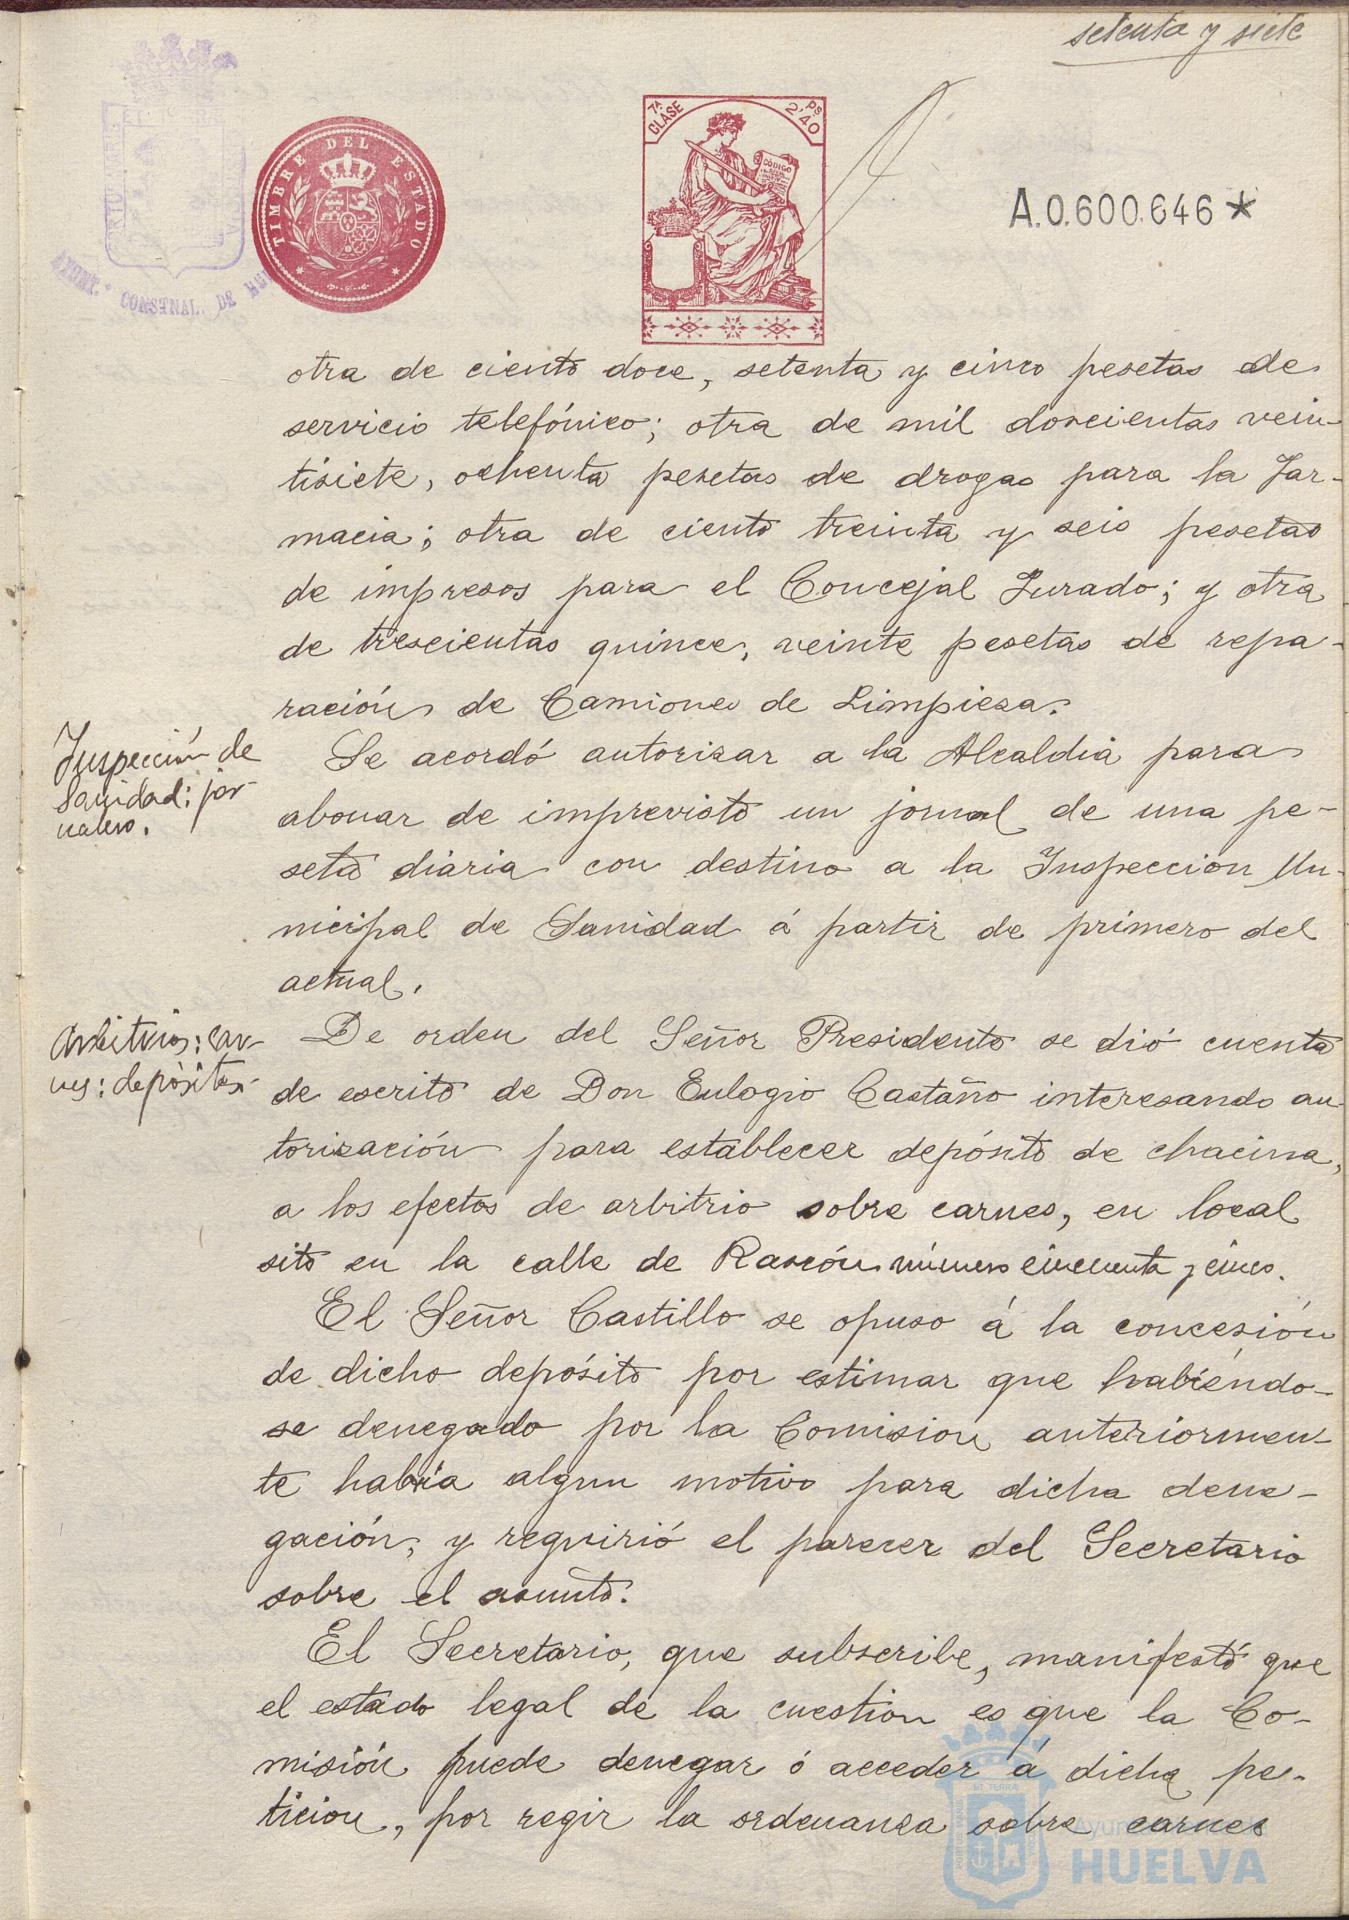 setenta y siete
TIMBRE DEL ESTADO
7ª CLASE
2'40 Ps
CÓDIGO
A.0.600.646*
AYUNT. CONSTNAL. DE
otra de ciento doce, setenta y cinco pesetas de
servicio telefónico; otra de mil doscientas vein-
tisiete, ochenta pesetas de drogas para la Far-
macia; otra de ciento treinta y seis pesetas
de impresos para el Concejal Jurado; y otra
de trescientas quince, veinte pesetas de repa-
ración de Camiones de Limpieza.
Inspección de
Sanidad: jor-
nalero.
Se acordó autorizar a la Alcaldia para
abonar de imprevisto un jornal de una pe-
seta diaria con destino a la Inspeccion Mu-
nicipal de Sanidad á partir de primero del
actual.
Arbitrios: car-
nes: depósitos
De orden del Señor Presidente se dió cuenta
de escrito de Don Eulogio Castaño interesando au-
torización para establecer depósito de chacina,
a los efectos de arbitrio sobre carnes, en local
sito en la calle de Rascón número cincuenta y cinco.
El Señor Castillo se opuso á la concesión
de dicho depósito por estimar que habiéndo-
se denegado por la Comision anteriormen-
te habría algun motivo para dicha dene-
gación, y requirió el parecer del Secretario
sobre el asunto.
El Secretario, que subscribe, manifestó que
el estado legal de la cuestion es que la Co-
misión puede denegar ó acceder á dicha pe-
ticion, por regir la ordenanza sobre carnes
HUELVA